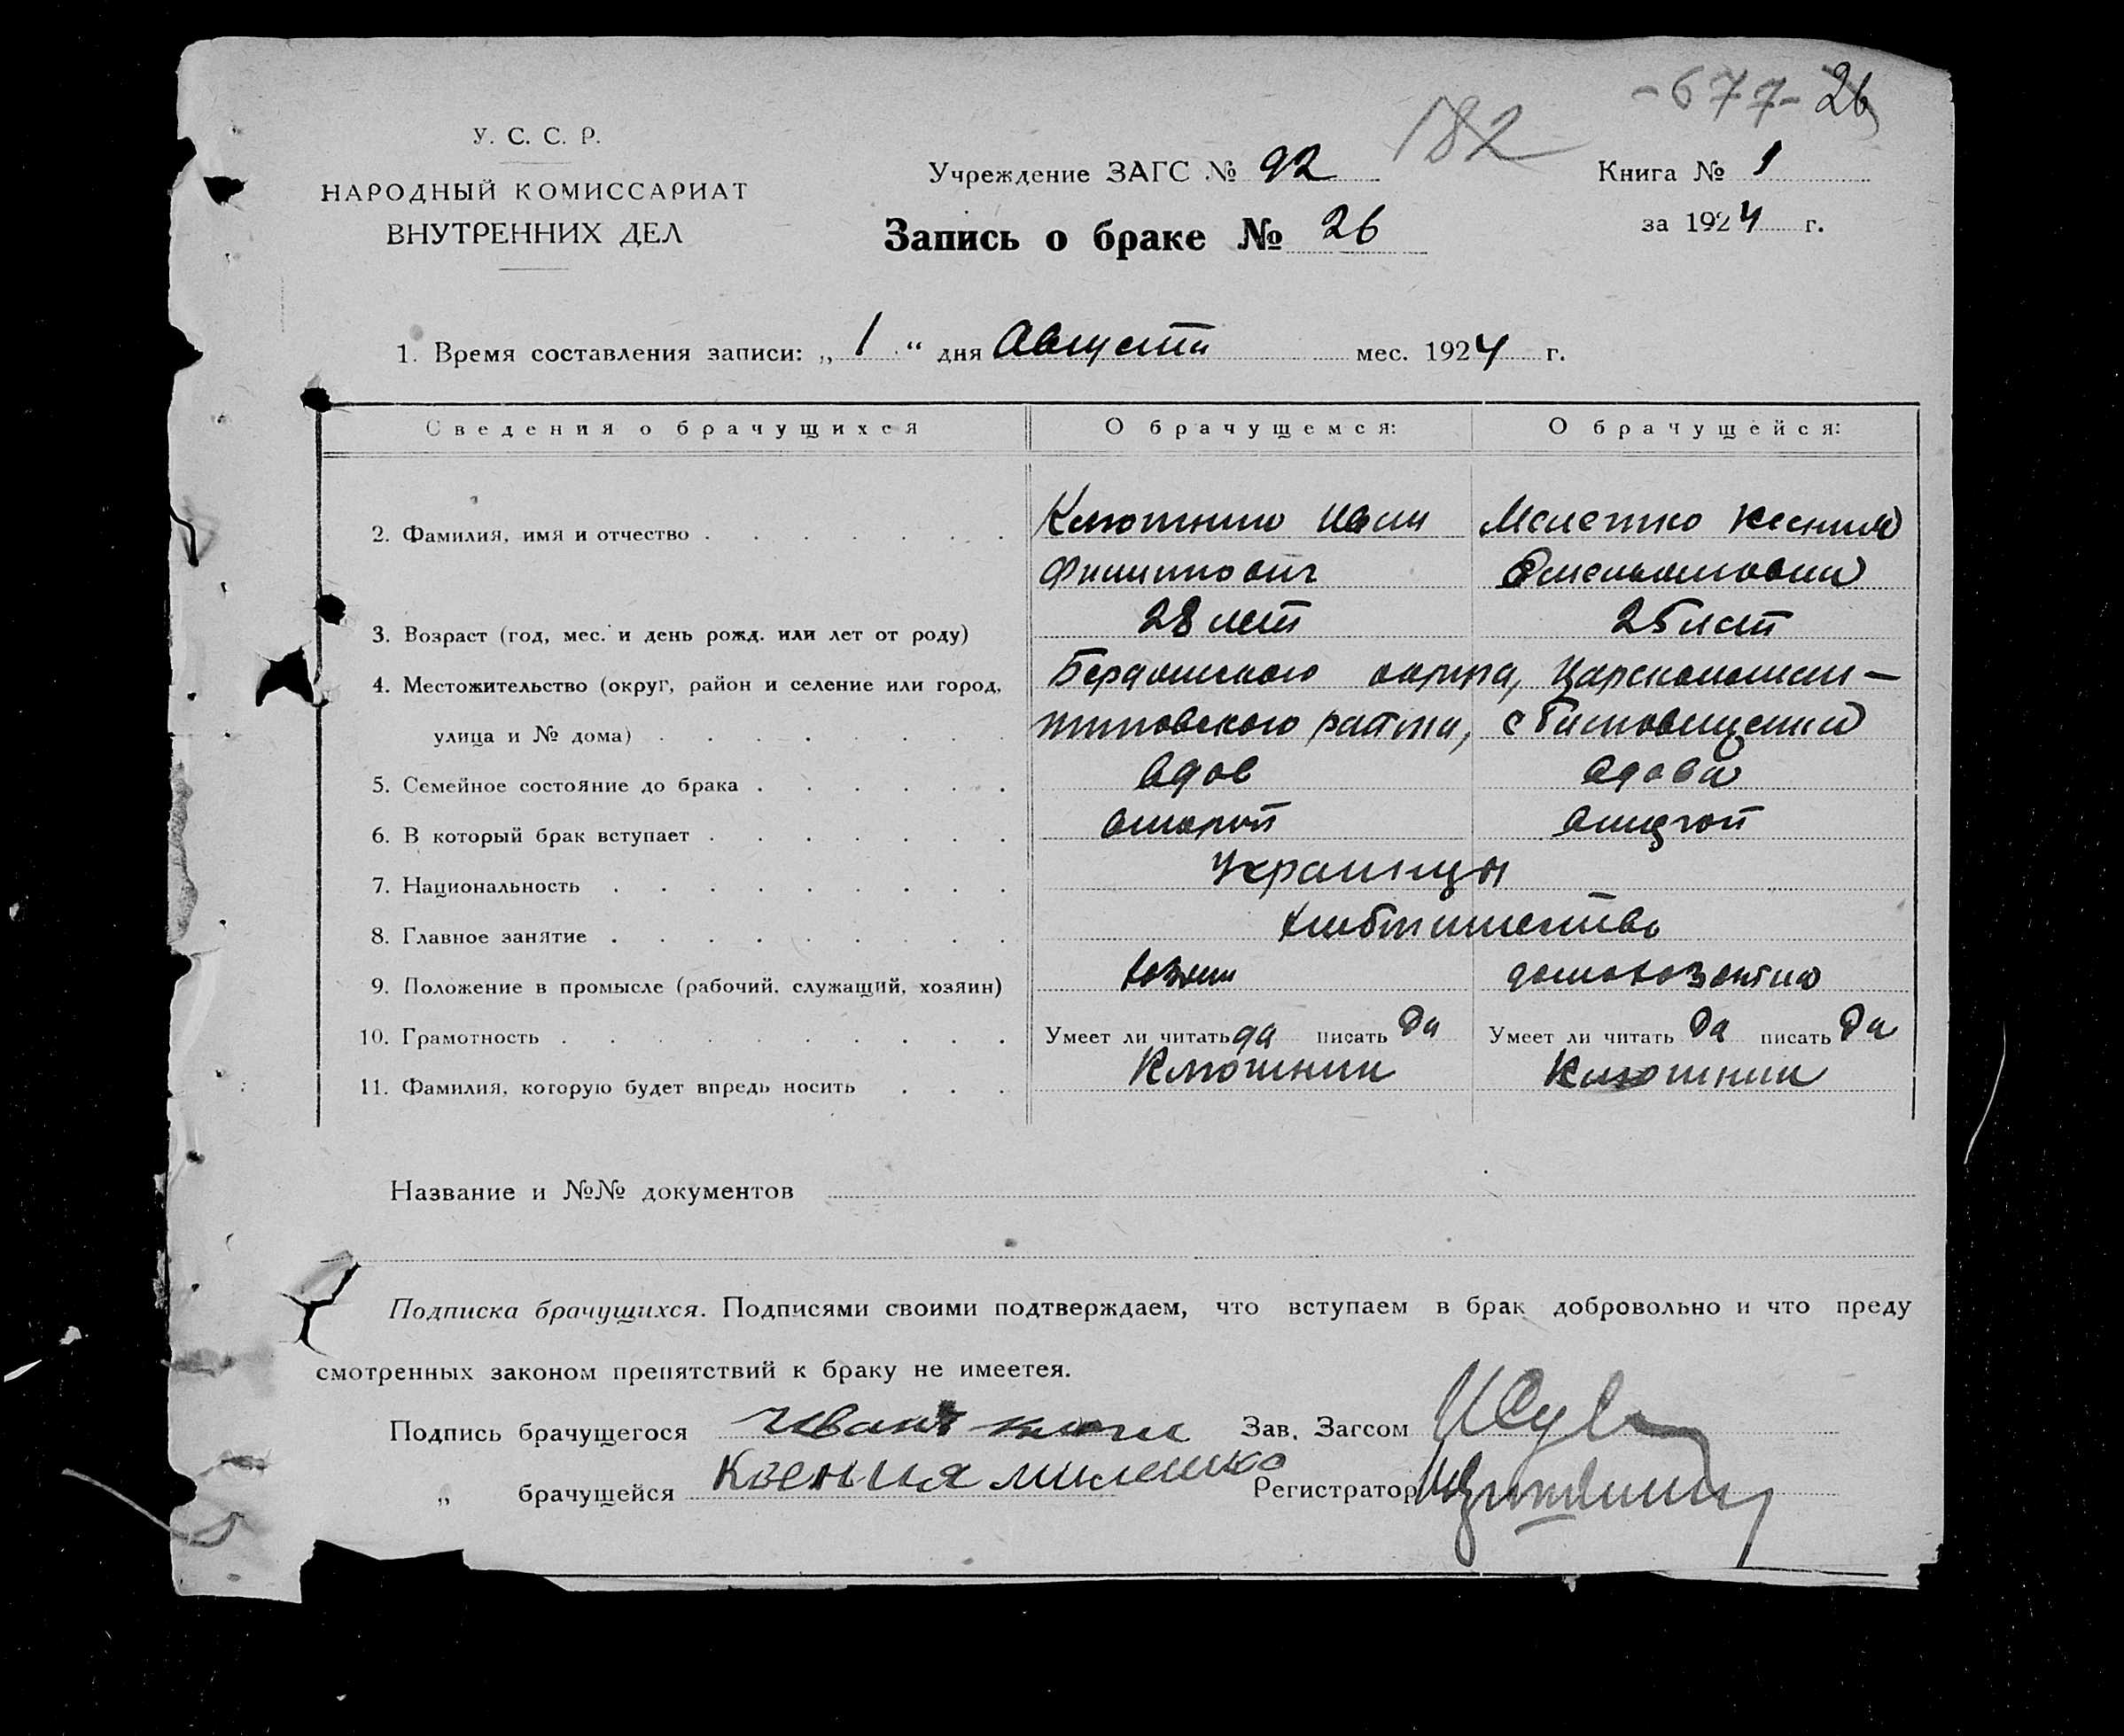 -677- 26
182
У. С. С. Р.
НАРОДНЫЙ КОМИССАРИАТ
ВНУТРЕННИХ ДЕЛ
Учреждение ЗАГС № 92
Запись о браке № 26
Книга № 1
за 1924 г.
1. Время составления записи: „ 1 “ дня Августа мес. 1924 г.
Сведения о брачущихся О брачущемся: О брачущейся:
2. Фамилия, имя и отчество Иван Ксения
Филиппович Емельяновна
3. Возраст (год, мес. и день рожд. или лет от роду) 28 лет 25 лет
4. Местожительство (округ, район и селение или город, Бердянского округа, Цареконстан-
улица и № дома) тиновского района,
5. Семейное состояние до брака вдов вдова
6. В который брак вступает второй
7. Национальность Украинцы
8. Главное занятие хлебопашество
9. Положение в промысле (рабочий, служащий, хозяин) хозяин домохозяйка
10. Грамотность Умеет ли читать да писать да Умеет ли читать да писать да
11. Фамилия, которую будет впредь носить
Название и №№ документов
Подписка брачущихся. Подписями своими подтверждаем, что вступаем в брак добровольно и что преду
смотренных законом препятствий к браку не имеетея.
Подпись брачущегося Иван Зав. Загсом
„ брачущейся Ксения Регистратор